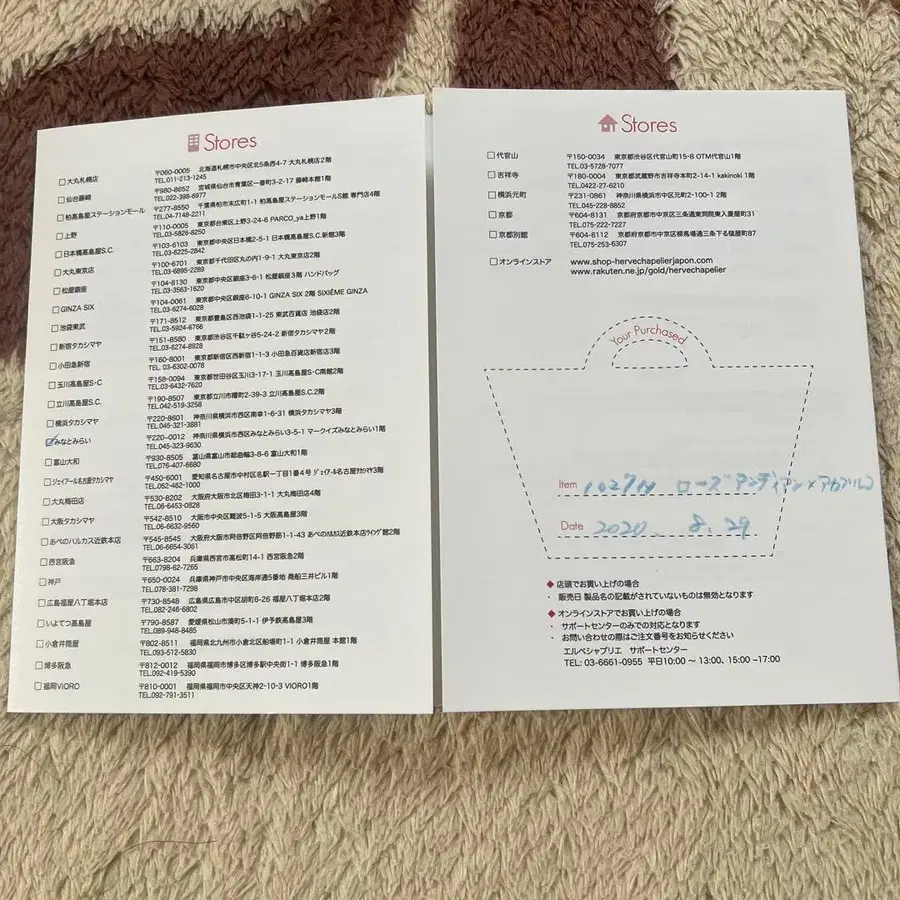 Stores
□大丸札幌店 〒060-0005 北海道札幌市中央区北5条西4-7 大丸札幌店2階
TEL.011-213-1245
□仙台藤崎 〒980-8652 宮城県仙台市青葉区一番町3-2-17 藤崎本館1階
TEL.022-398-6977
□柏高島屋ステーションモール 〒277-8550 千葉県柏市末広町1-1 柏高島屋ステーションモールS館 専門店4階
TEL.04-7148-2211
□上野 〒110-0005 東京都台東区上野3-24-6 PARCO_ya上野1階
TEL.03-5826-8250
□日本橋高島屋S.C. 〒103-6103 東京都中央区日本橋2-5-1 日本橋高島屋S.C.新館3階
TEL.03-6225-2842
□大丸東京店 〒100-6701 東京都千代田区丸の内1-9-1 大丸東京店2階
TEL.03-6895-2289
□松屋銀座 〒104-8130 東京都中央区銀座3-6-1 松屋銀座3階 ハンドバッグ
TEL.03-3563-1620
□GINZA SIX 〒104-0061 東京都中央区銀座6-10-1 GINZA SIX 2階 SIXIÈME GINZA
TEL.03-6274-6028
□池袋東武 〒171-8512 東京都豊島区西池袋1-1-25 東武百貨店 池袋店2階
TEL.03-5924-6766
□新宿タカシマヤ 〒151-8580 東京都渋谷区千駄ヶ谷5-24-2 新宿タカシマヤ2階
TEL.03-6274-8928
□小田急新宿 〒160-8001 東京都新宿区西新宿1-1-3 小田急百貨店新宿店3階
TEL.03-6302-0078
□玉川高島屋S・C 〒158-0094 東京都世田谷区玉川3-17-1 玉川高島屋S・C南館2階
TEL.03-6432-7620
□立川高島屋S.C. 〒190-8507 東京都立川市曙町2-39-3 立川高島屋S.C.2階
TEL.042-519-3258
□横浜タカシマヤ 〒220-8601 神奈川県横浜市西区南幸1-6-31 横浜タカシマヤ3階
TEL.045-321-3881
☑みなとみらい 〒220-0012 神奈川県横浜市西区みなとみらい3-5-1 マークイズみなとみらい1階
TEL.045-323-9630
□富山大和 〒930-8505 富山県富山市総曲輪3-8-6 富山大和1階
TEL.076-407-6680
□ジェイアール名古屋タカシマヤ 〒450-6001 愛知県名古屋市中村区名駅一丁目1番4号 ジェイアール名古屋タカシマヤ3階
TEL.052-462-1000
□大丸梅田店 〒530-8202 大阪府大阪市北区梅田3-1-1 大丸梅田店4階
TEL.06-6453-0828
□大阪タカシマヤ 〒542-8510 大阪市中央区難波5-1-5 大阪高島屋3階
TEL.06-6632-9560
□あべのハルカス近鉄本店 〒545-8545 大阪府大阪市阿倍野区阿倍野筋1-1-43 あべのハルカス近鉄本店ウイング館2階
TEL.06-6654-3061
□西宮阪急 〒663-8204 兵庫県西宮市高松町14-1 西宮阪急2階
TEL.0798-62-7265
□神戸 〒650-0024 兵庫県神戸市中央区海岸通5番地 商船三井ビル1階
TEL.078-381-7298
□広島福屋八丁堀本店 〒730-8548 広島県広島市中区胡町6-26 福屋八丁堀本店2階
TEL.082-246-6802
□いよてつ髙島屋 〒790-8587 愛媛県松山市湊町5-1-1 伊予鉄髙島屋3階
TEL.089-948-8485
□小倉井筒屋 〒802-8511 福岡県北九州市小倉北区船場町1-1 小倉井筒屋 本館1階
TEL.093-512-5830
□博多阪急 〒812-0012 福岡県福岡市博多区博多駅中央街1-1 博多阪急1階
TEL.092-419-5390
□福岡VIORO 〒810-0001 福岡県福岡市中央区天神2-10-3 VIORO1階
TEL.092-791-3511
Stores
□代官山 〒150-0034 東京都渋谷区代官山町15-8 OTM代官山1階
TEL.03-5728-7077
□吉祥寺 〒180-0004 東京都武蔵野市吉祥寺本町2-14-1 kakinoki 1階
TEL.0422-27-6210
□横浜元町 〒231-0861 神奈川県横浜市中区元町2-100-1 2階
TEL.045-228-8852
□京都 〒604-8131 京都府京都市中京区三条通東洞院東入菱屋町31
TEL.075-222-7227
□京都別館 〒604-8112 京都府京都市中京区柳馬場通三条下る槌屋町87
TEL.075-253-6307
□オンラインストア www.shop-hervechapelierjapon.com
www.rakuten.ne.jp/gold/hervechapelier
Your Purchased
Item 1027N ローズアンディアン×アカプルコ
Date 2020. 8. 29
◆ 店頭でお買い上げの場合
・ 販売日 製品名の記載がされていないものは無効となります
◆ オンラインストアでお買い上げの場合
・ サポートセンターのみでの対応となります
・ お問い合わせの際はご注文番号をお知らせください
エルベシャプリエ サポートセンター
TEL: 03-6661-0955 平日10:00 ~ 13:00、15:00 ~17:00